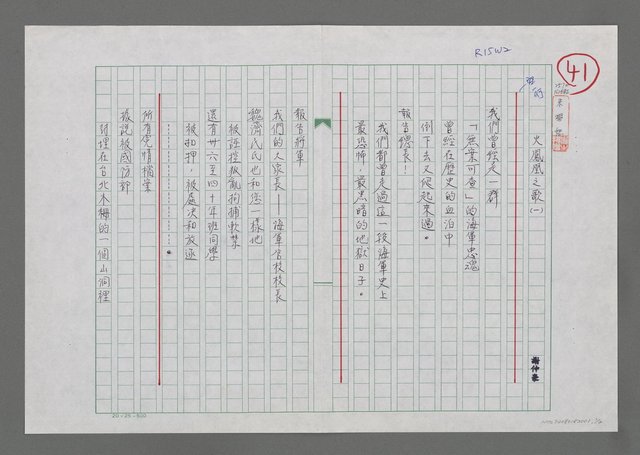 R15W2
41
火鳳凰之歌(一)
謝仲豪
我們曾經是一群
「無案可查」的海軍忠魂
曾經在歷史的血泊中
倒下去又爬起來過。
報告總長！
我們都曾走過這一段海軍史上
最恐怖，最黑暗的地獄日子。
報告將軍
我們的大家長——海軍官校校長
魏濟民氏也和您一樣地
被誣控叛亂拘捕軟禁
還有卅六至四十年班同學
被扣押，被處決和放逐
………………。
所有冤情檔案
據說被國防部
封埋在台北木柵的一個山洞裡
20×25=500